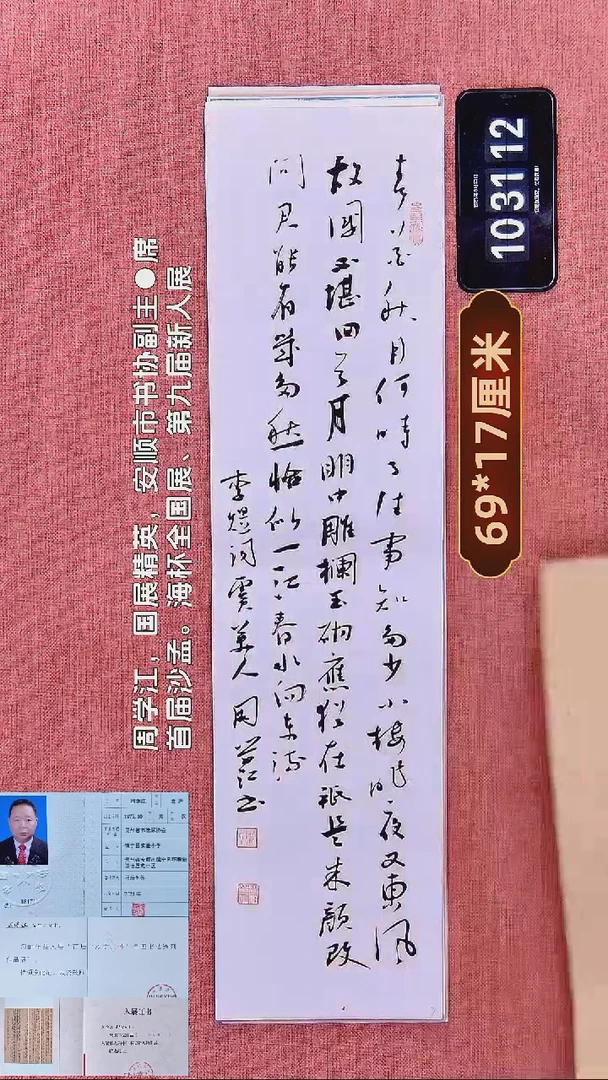 春花秋月何時了往事知多少小樓昨夜又東風
故國不堪回首月明中雕欄玉砌應猶在衹是朱顏改
問君能有幾多愁恰似一江春水向東流
李煜詞虞美人 周學江書
10 31 12
69*17厘米
周学江，国展精英，安顺市书协副主●席
首届沙孟。海杯全国展、第九届新人展
入展证书